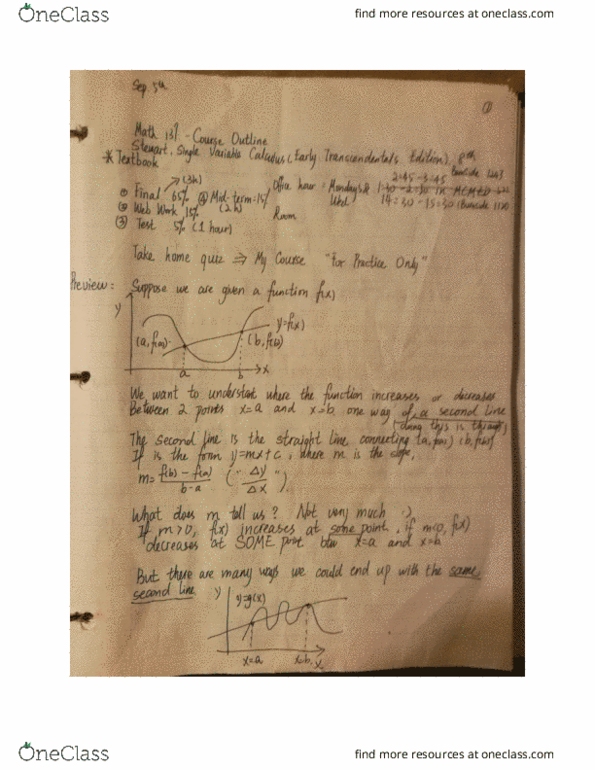 OneClass
find more resources at oneclass.com
Sep. 5th
①
Math 139 - Course Outline
* Textbook Stewart, Single Variable Calculus (Early Transcendentals Edition), 8th
(3h)
① Final 65% ④ Mid-term 15%
② Web Work 15% (2h)
③ Test 5% (1 hour)
Office hour = Monday
2:45 - 3:45
Wed. 14:30 - 15:30
Room
Take home quiz ⇒ My Course "For Practice Only"
Preview: Suppose we are given a function f(x)
y
y=f(x)
(a, f(a)) (b, f(b))
a b x
We want to understat where the function increases or decreases
Between 2 points x=a and x=b, one way of a second line
(doing this is through)
The second line is the straight line connecting (a, f(a)) (b, f(b))
If is the form y=mx+c, where m is the slope,
m= f(b) - f(a) / b-a ( " Δy / Δx " ).
What does m tell us? Not very much :)
If m>0, f(x) increases at some point, if m<0, f(x)
decreases at SOME point btw x=a and x=b
But there are many ways we could end up with the same
second line
y
y=g(x)
x=a x=b, x
OneClass
find more resources at oneclass.com